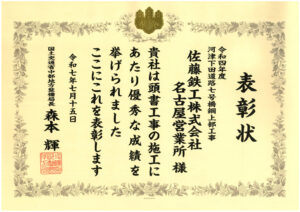 表彰状
令和四年度
河津下田道路七号橋鋼上部工事
佐藤鉄工株式会社
名古屋営業所 様
貴社は頭書工事の施工に
あたり優秀な成績を
挙げられました
ここにこれを表彰します
令和七年七月十五日
国土交通省中部地方整備局長
森本 輝